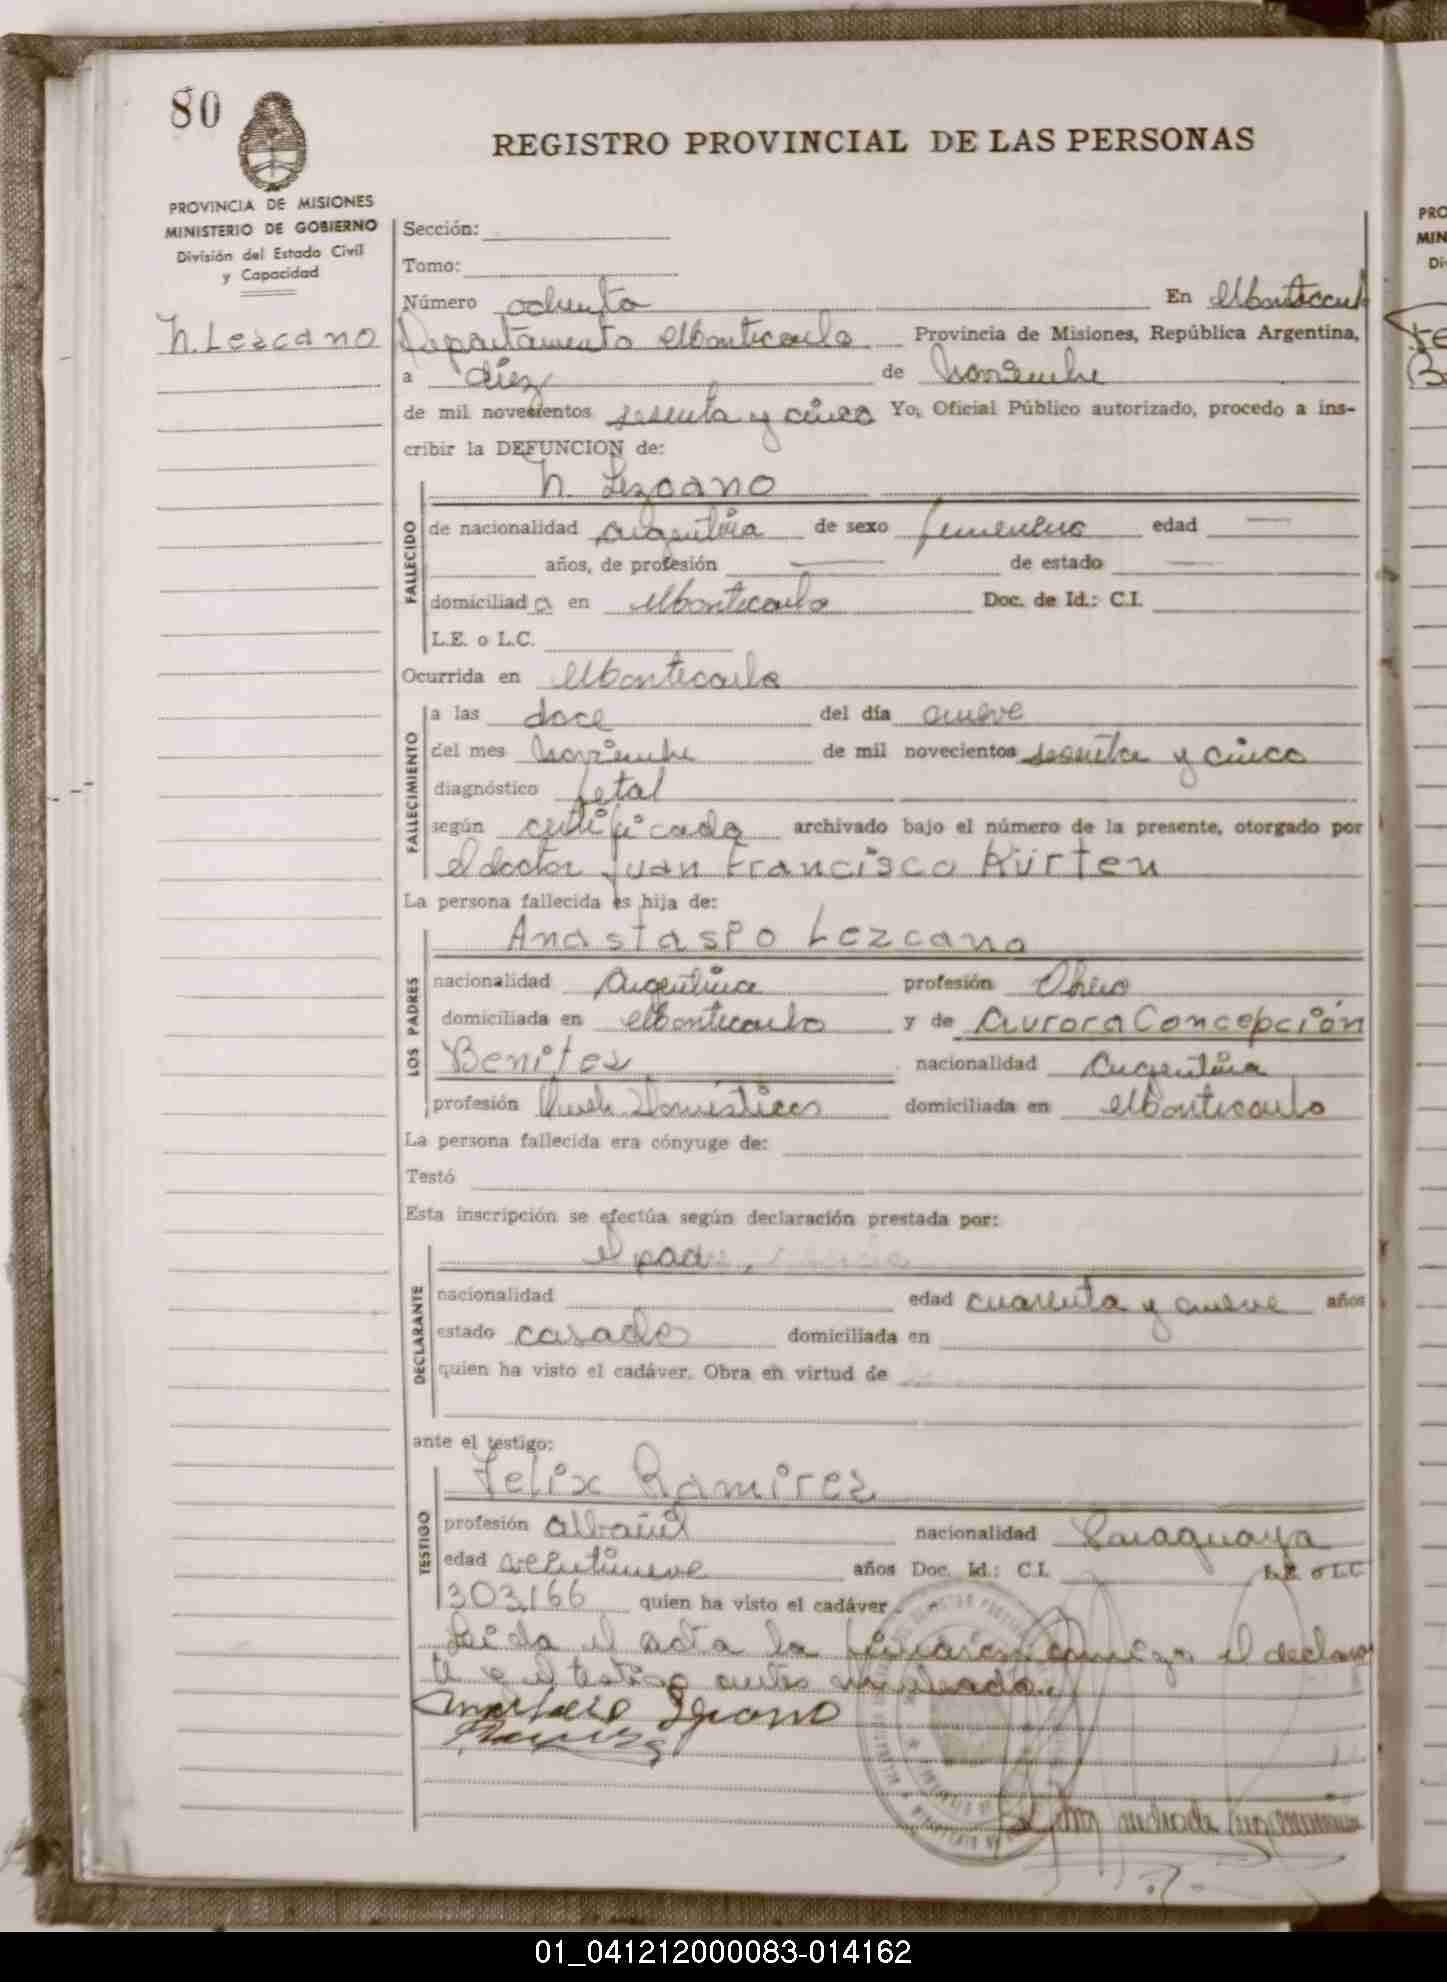 80
REGISTRO PROVINCIAL DE LAS PERSONAS
PROVINCIA DE MISIONES
MINISTERIO DE GOBIERNO
División del Estado Civil
y Capacidad
N. Lezcano
Sección:
Tomo:
Número ochenta En Montecarlo
Departamento Montecarlo Provincia de Misiones, República Argentina,
a diez de Noviembre
de mil novecientos sesenta y cinco Yo, Oficial Público autorizado, procedo a ins-
cribir la DEFUNCION de:
N. Lezcano
FALLECIDO
de nacionalidad argentina de sexo femenino edad —
años, de profesión — de estado —
domiciliada en Montecarlo Doc. de Id.: C.I.
L.E. o L.C.
Ocurrida en Montecarlo
FALLECIMIENTO
a las doce del día nueve
del mes Noviembre de mil novecientos sesenta y cinco
diagnóstico fetal
según certificado archivado bajo el número de la presente, otorgado por
el doctor Juan Francisco Kürten
La persona fallecida es hija de:
LOS PADRES
Anastasio Lezcano
nacionalidad Argentina profesión Obrero
domiciliada en Montecarlo y de Aurora Concepción
Benitez nacionalidad Argentina
profesión Queh. Domésticos domiciliada en Montecarlo
La persona fallecida era cónyuge de:
Testó
Esta inscripción se efectúa según declaración prestada por:
DECLARANTE
el padre,
nacionalidad edad cuarenta y nueve años
estado casado domiciliada en
quien ha visto el cadáver. Obra en virtud de
ante el testigo:
TESTIGO
Felix Ramirez
profesión albañil nacionalidad Paraguaya
edad veintinueve años Doc. Id.: C.I. L.E. o L.C.
303.166 quien ha visto el cadáver
Leida el acta la firman conmigo el declaran
te y el testigo antes nombrado.
PRO
MIN
Di
01_041212000083-014162